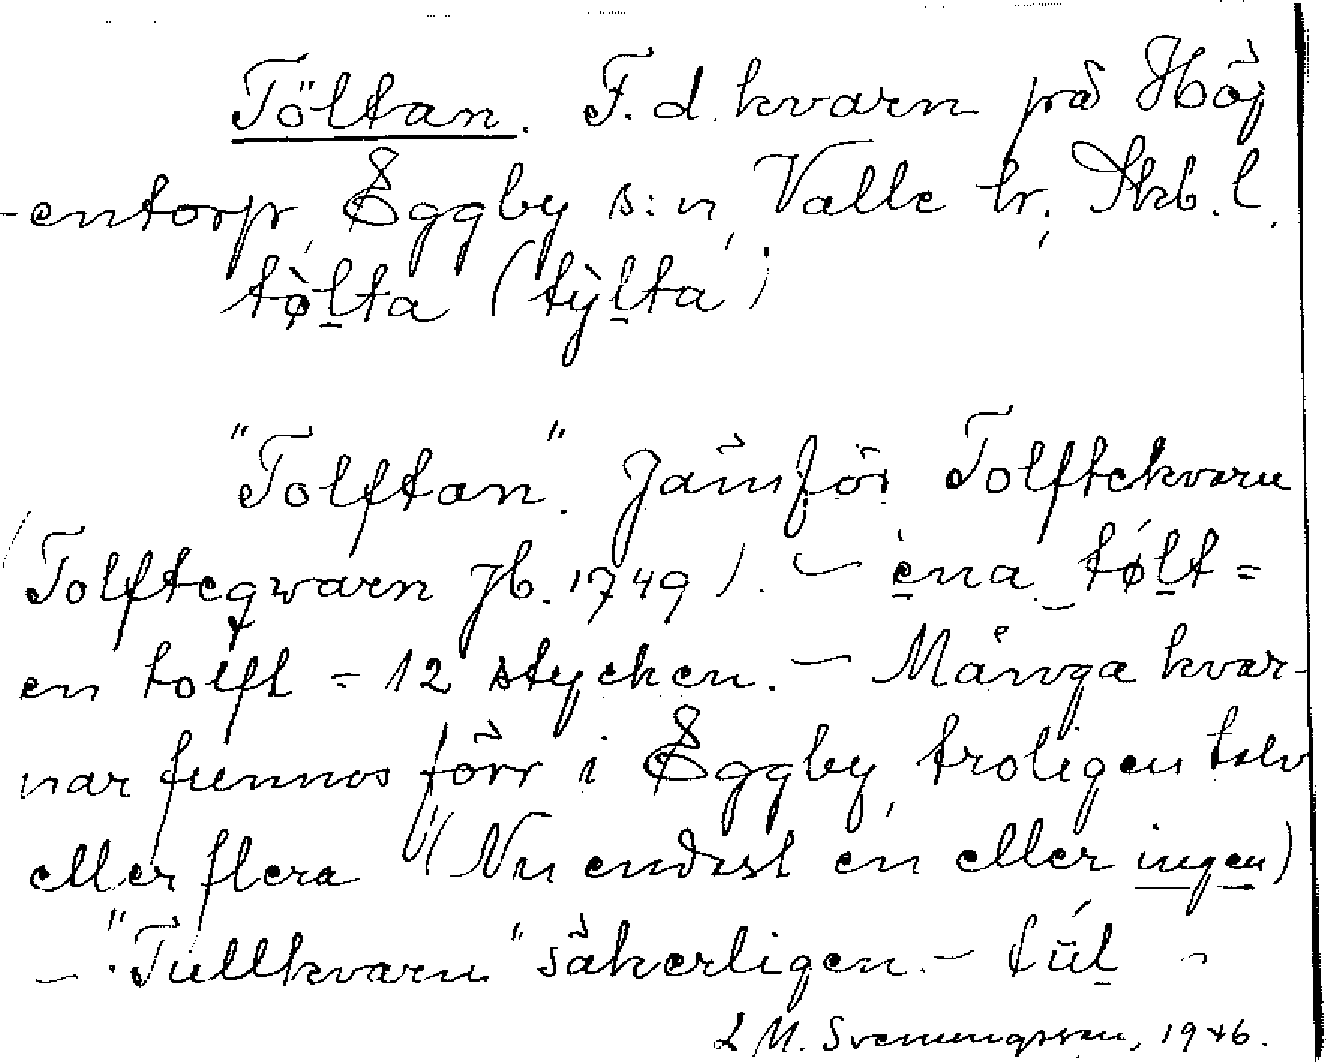 Töltan. F. d. kvarn på Höj
-entorp, Eggby s:n, Valle hr, Skb. l.
tø̀lta (tỳlta)
"Tolftan". Jämför Tolftekvarn
(Tolfteqwarn Jb. 1749). – ena tǿlt =
en tolft = 12 stycken. – Många kvar-
nar funnos förr i Eggby, troligen tolv
eller flera (Nu endast en eller ingen)
– "Tullkvarn" säkerligen. – túl –
L M. Svenungsson, 1946.